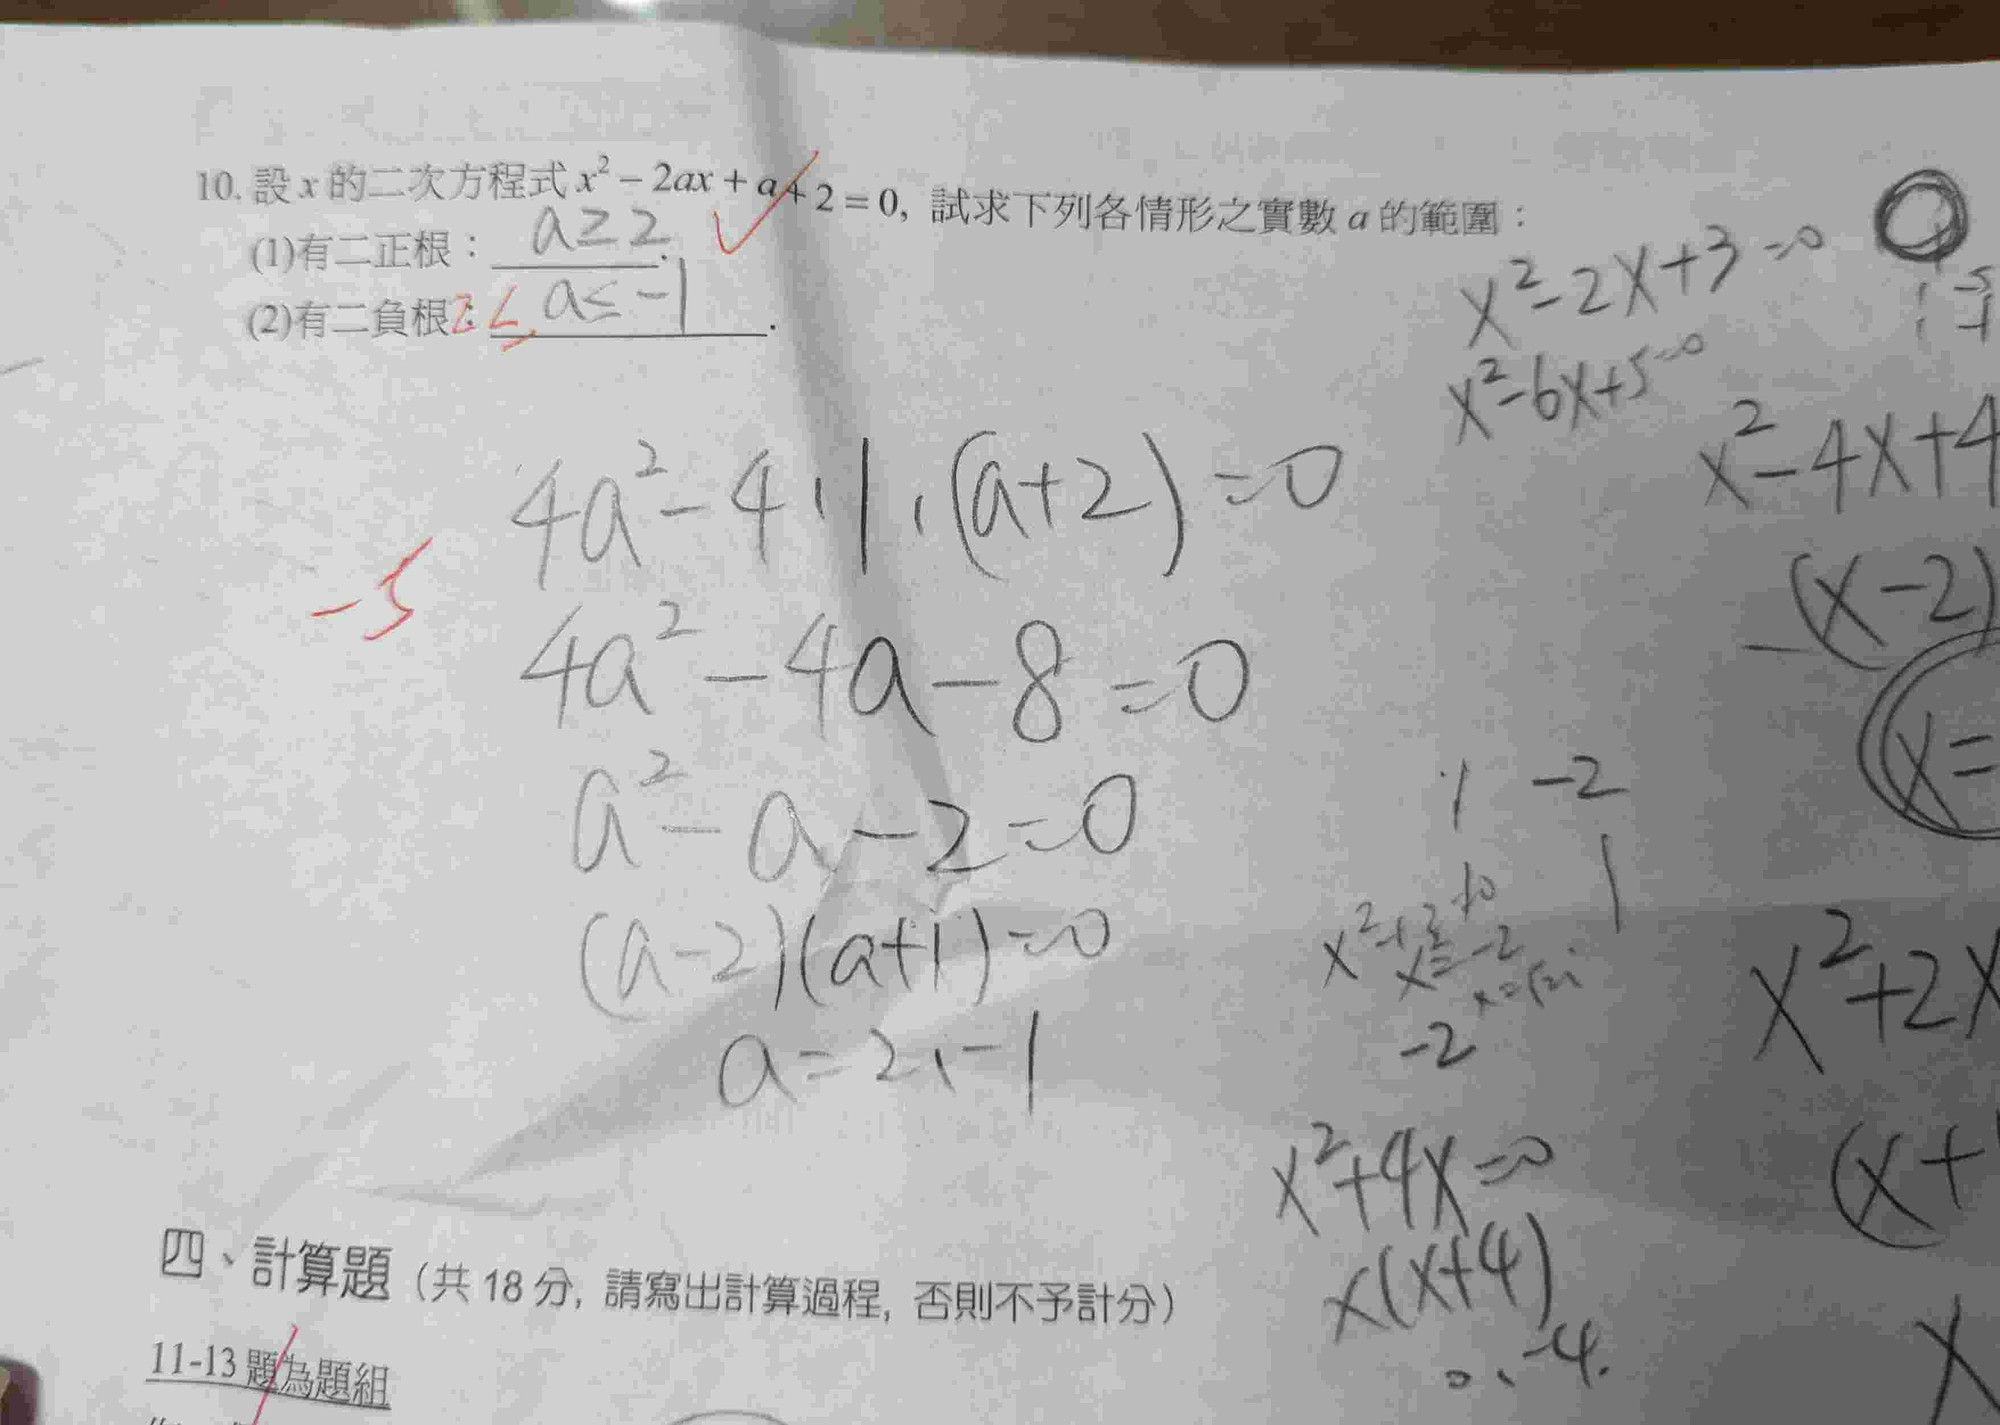 10. 設 x 的二次方程式 x² − 2ax + a + 2 = 0, 試求下列各情形之實數 a 的範圍：
(1)有二正根： a ≥ 2 .
(2)有二負根： a ≤ -1 .
x²-2x+3=0
x²-6x+5=0
x²-4x+4
4a²-4·1·(a+2)=0
-5
(x-2)
4a²-4a-8=0
x=
a²-a-2=0
1 -2
1
(a-2)(a+1)=0
x²+2x
-2
a=2,-1
x²+4x=0
(x+
x(x+4)
0、-4.
x
四、計算題（共 18 分, 請寫出計算過程, 否則不予計分）
11-13 題為題組